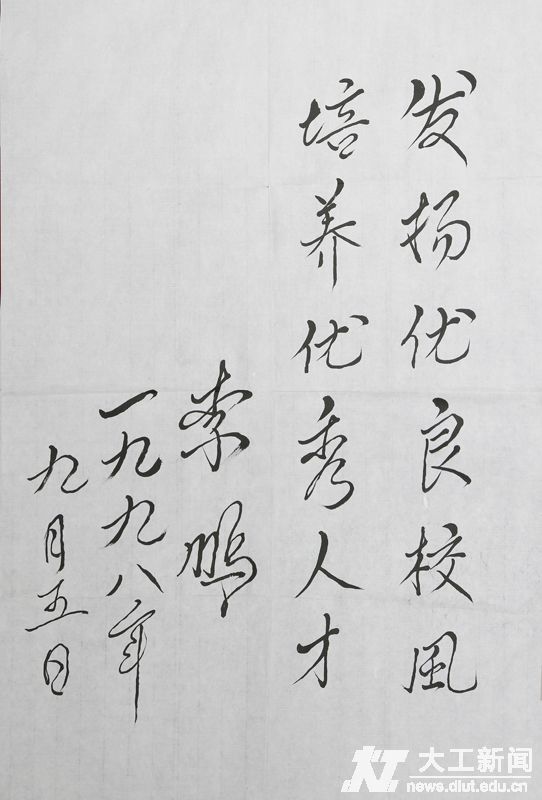 发扬优良校风
培养优秀人才
李鹏
一九九八年
九月五日
大工新闻
news.dlut.edu.cn